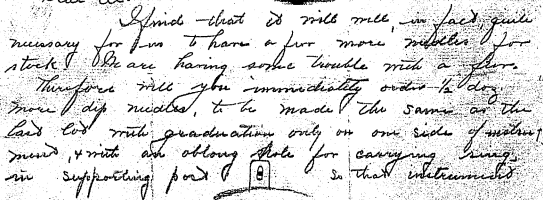 I find that it will well, in fact quite
necessary for us to have a few more needles for
stock. We are having some trouble with a few.
Therefore will you immediately order 1/2 doz
more dip needles, to be made the same as the
last lot with graduation only on one side of instru-
ment, & with an oblong hole for carrying ring
in supporting post so that instrument